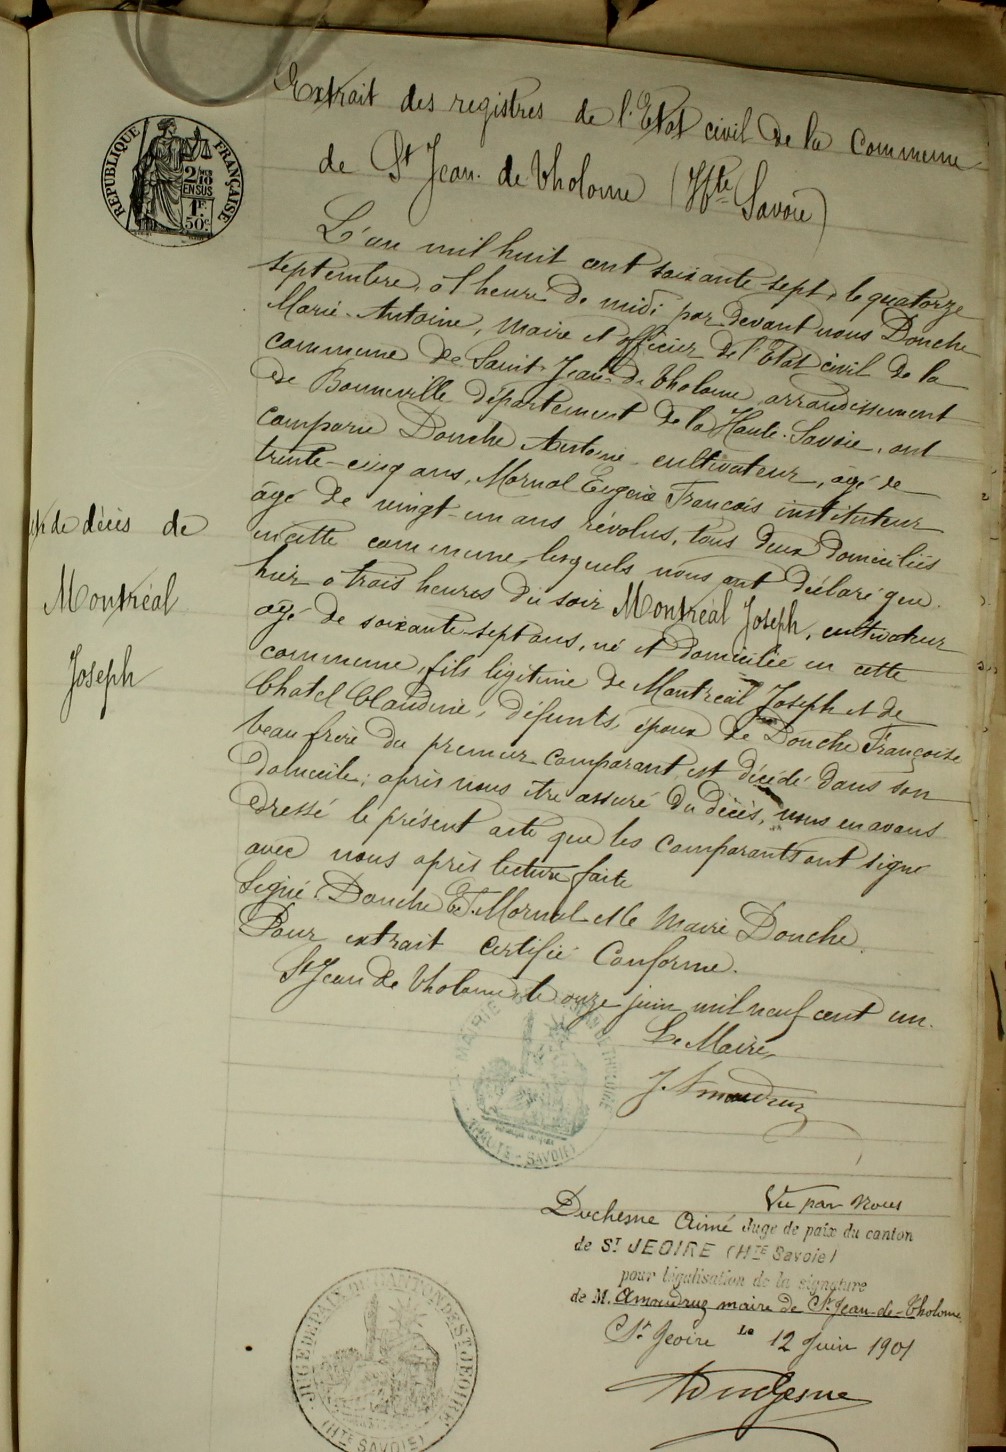 Extrait des registres de l'Etat civil de la Commune
de St Jean de Tholome (Hte Savoie)
RÉPUBLIQUE FRANÇAISE
2/10
EN SUS
1F.
50c.
L'an mil huit cent soixante sept, le quatorze
septembre, à l'heure de midi par devant nous Donche
Marie-Antoine, maire et officier de l'Etat civil de la
commune de Saint-Jean-de-Tholome, arrondissement
de Bonneville département de la Haute-Savoie, ont
comparu Donche Antoine cultivateur, âgé de
trente-cinq ans, Mornal François instituteur
âgé de vingt-un ans révolus, tous deux domiciliés
en cette commune, lesquels nous ont déclaré que
hier à trois heures du soir Montréal Joseph, cultivateur
âgé de soixante-sept ans, né et domicilié en cette
commune, fils légitime de Montréal Joseph et de
Chatel Claudine, défunts, époux de Donche Françoise
beau frère du premier comparant, est décédé dans son
domicile; après nous être assuré du décès, nous en avons
dressé le présent acte que les comparants ont signé
avec nous après lecture faite
Signé: Donche Mornal et le Maire Donche.
Pour extrait certifié Conforme.
St Jean de Tholome le onze juin mil neuf cent un.
Le Maire,
J. Amoudruz
de décès de
Montréal
Joseph
MAIRIE DE THOLOME
(HAUTE-SAVOIE)
Vu par Nous
Duchesne Aimé Juge de paix du canton
de St JEOIRE (Hte Savoie)
pour légalisation de la signature
de M. Amoudruz maire de St-Jean-de-Tholome
St Jeoire Le 12 Juin 1901
Duchesne
JUGE DE PAIX DU CANTON DE ST JEOIRE
(HTE SAVOIE)